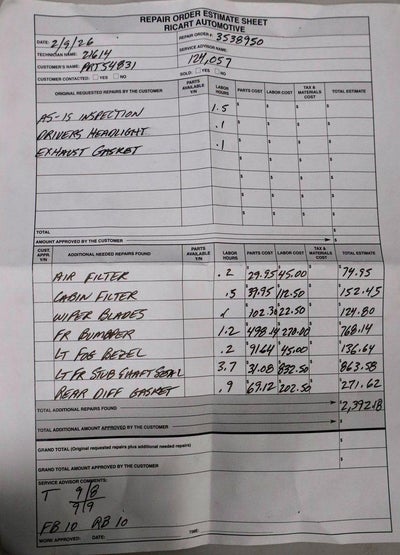 REPAIR ORDER ESTIMATE SHEET
RICART AUTOMOTIVE
DATE: 2/9/26 REPAIR ORDER #: 3538950
TECHNICIAN NAME: 21614 SERVICE ADVISOR NAME:
CUSTOMER'S NAME: PRT54831 124,057
CUSTOMER CONTACTED: YES NO SOLD: YES NO
ORIGINAL REQUESTED REPAIRS BY THE CUSTOMER PARTS AVAILABLE Y/N LABOR HOURS PARTS COST LABOR COST TAX & MATERIALS COST TOTAL ESTIMATE
AS-IS INSPECTION 1.5 $ $ $ $
DRIVERS HEADLIGHT .1 $ $ $ $
EXHAUST GASKET .1 $ $ $ $
TOTAL
AMOUNT APPROVED BY THE CUSTOMER $
CUST. APPR. Y/N ADDITIONAL NEEDED REPAIRS FOUND PARTS AVAILABLE Y/N LABOR HOURS PARTS COST LABOR COST TAX & MATERIALS COST TOTAL ESTIMATE
AIR FILTER .2 $29.95 $45.00 $ $74.95
CABIN FILTER .5 39.95 112.50 152.45
WIPER BLADES 102.30 22.50 124.80
FR BUMPPER 1.2 498.14 270.00 768.14
LT FOG BEZEL .2 91.64 45.00 136.64
LT FR STUB SHAFT SEAL 3.7 31.08 832.50 863.58
REAR DIFF GASKET .9 69.12 202.50 271.62
TOTAL ADDITIONAL REPAIRS FOUND $2,392.18
TOTAL ADDITIONAL AMOUNT APPROVED BY THE CUSTOMER $
GRAND TOTAL (Original requested repairs plus additional needed repairs) $
GRAND TOTAL AMOUNT APPROVED BY THE CUSTOMER $
SERVICE ADVISOR COMMENTS:
T 9/8
9/9
FB 10 RB 10
WORK APPROVED: DATE: TIME: